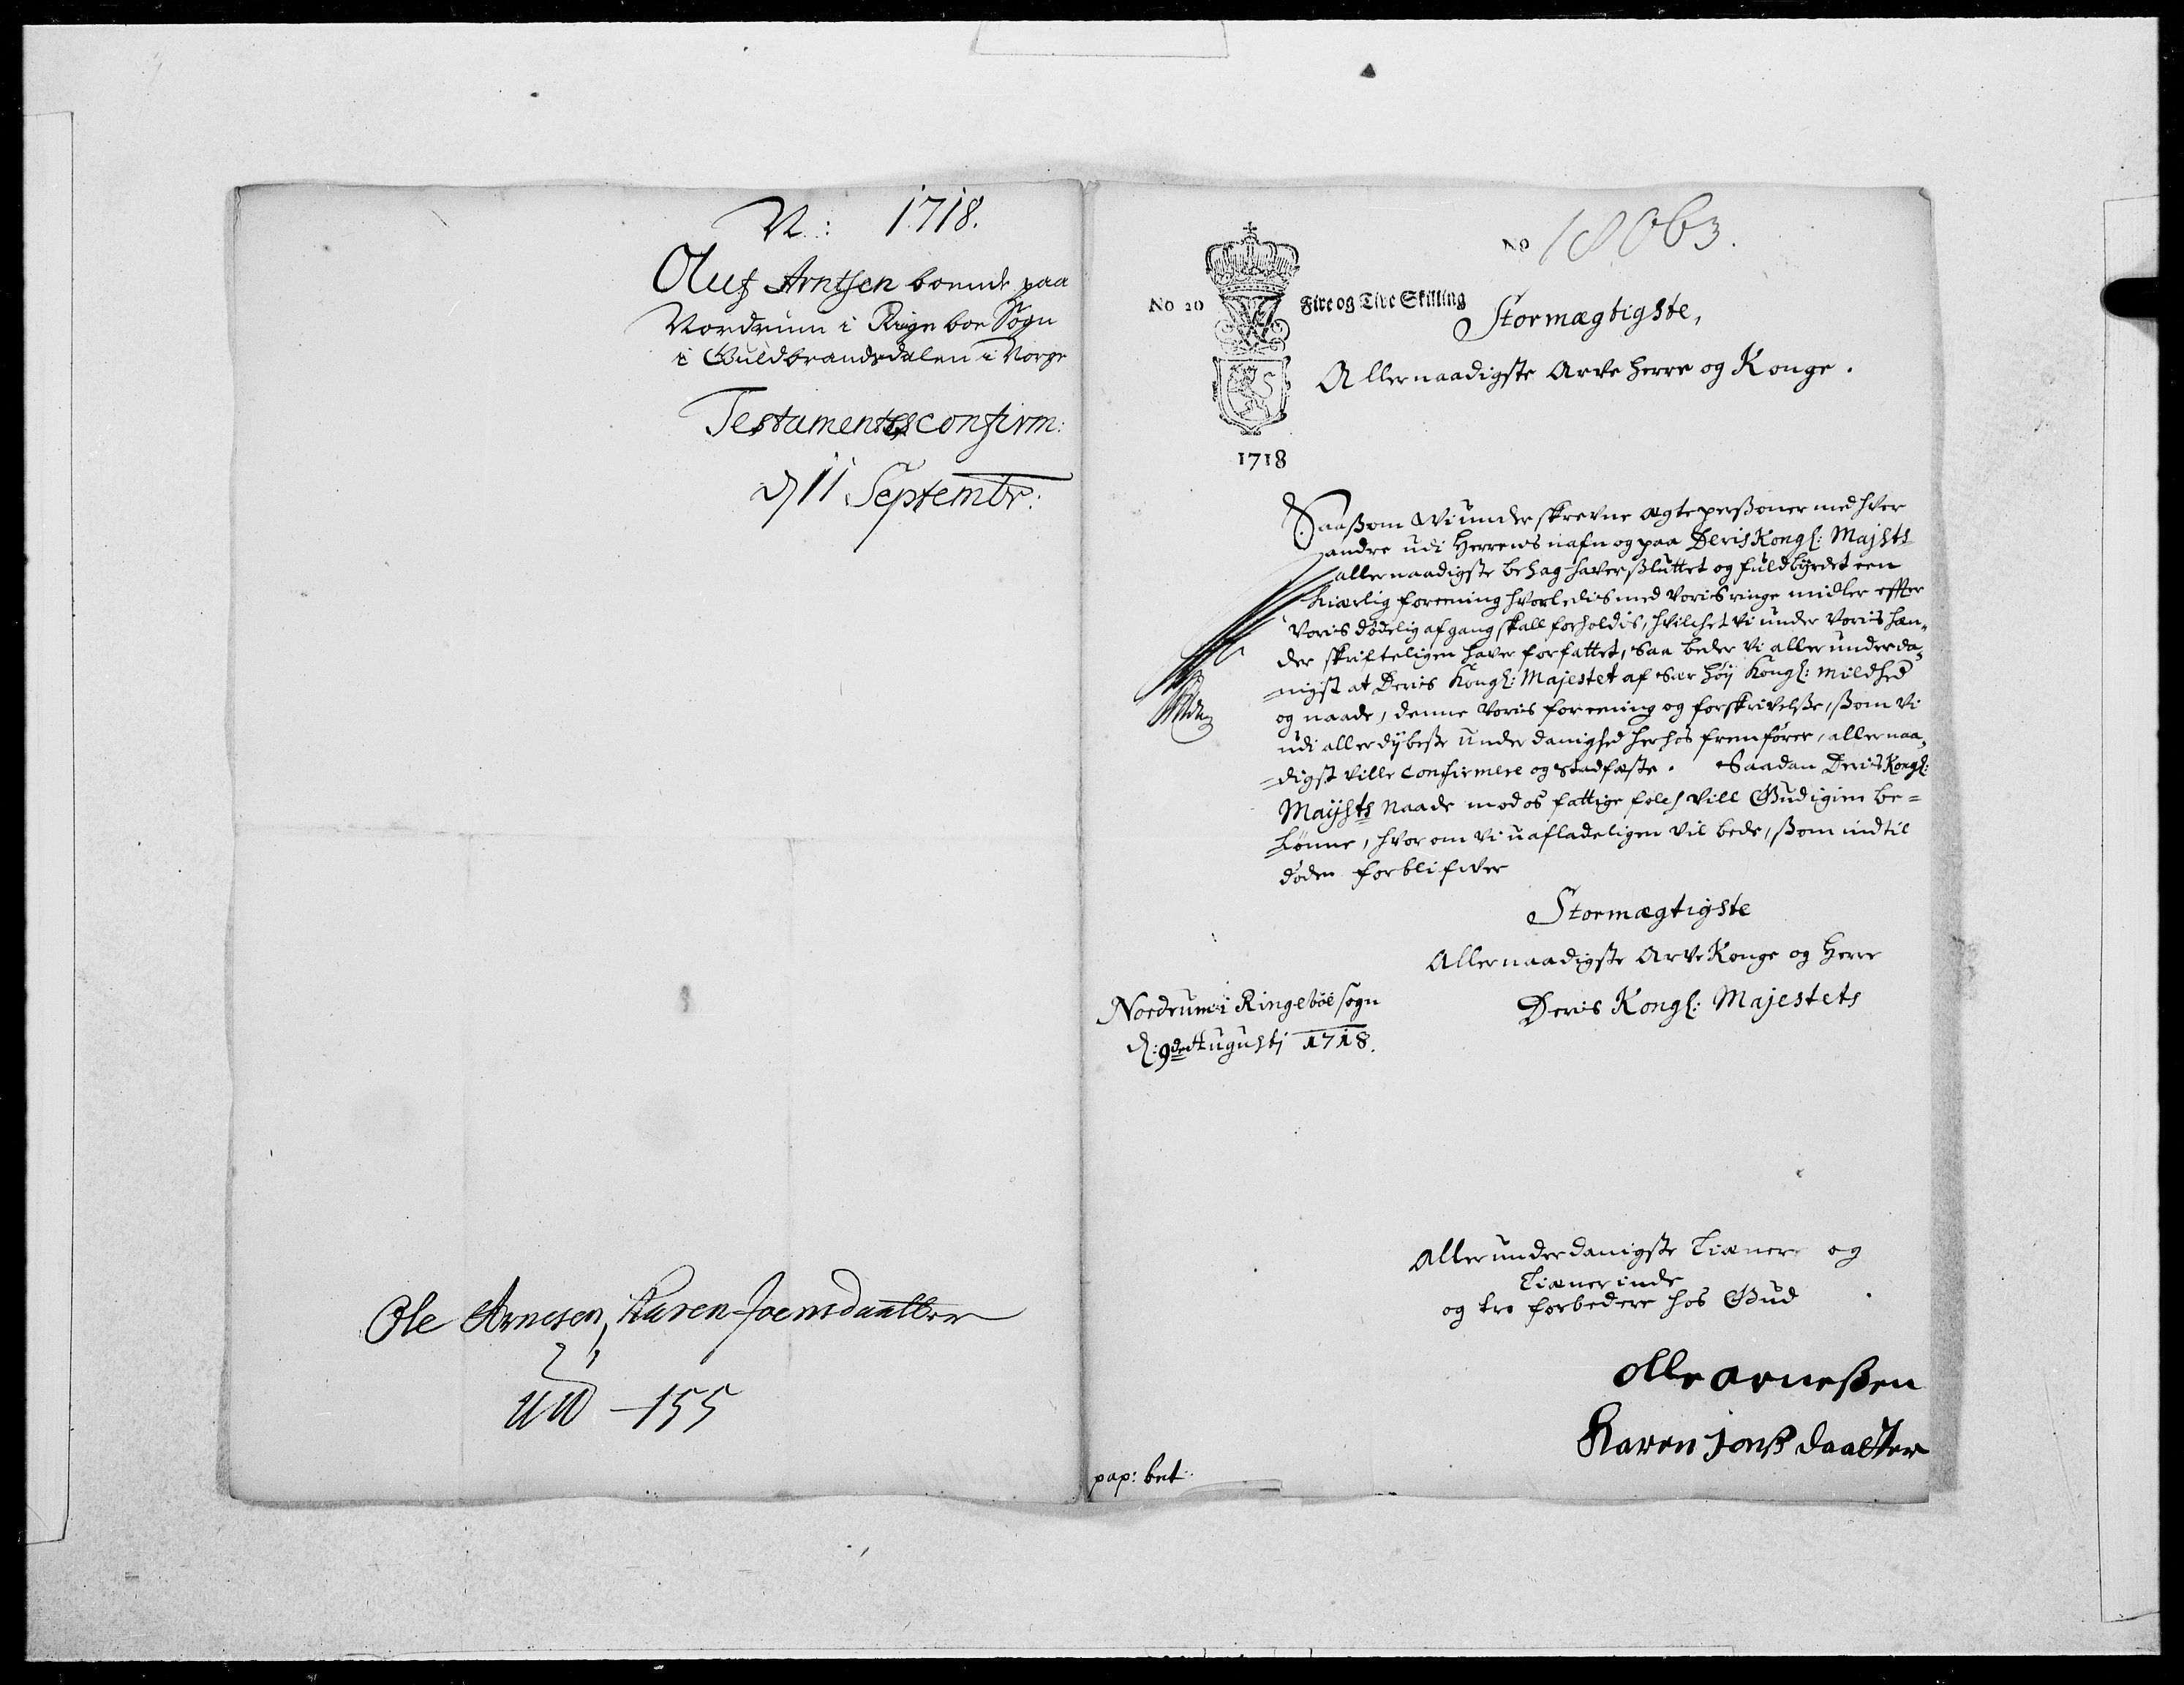 N: 1718.
Oluf Arntsen boende paa
Nordrum i Ringeboe Sogn
i Guldbrandsdalen i Norge
Testamentes confirm:
d 11 Septembr:
Ole Arnesen, Karen Joensdaatter
155
No 18063.
No 20
Fire og Tive Skilling
1718
Stormægtigste,
Allernaadigste Arve Herre og Konge.
Saasom Wi underskrevne ægtepersoner med hver
andre udi Herrens nafn og paa Deris Kongl: Majsts
allernaadigste behag haver sluttet og fuldbyrdet een
kierlig foreening hvorledis med voris ringe midler effter
voris dødelig afgang skall forholdis, hvilchet vi under voris hæn„
der skrifteligen haver forfattet, Saa beder vi aller underda„
nigst at Deris Kongl: Majestet af sær høy Kongl: mildhed
og naade, denne voris foreening og forskrivelse, som vi
udi allerdybeste underdanighed herhos fremfører, allernaa„
digst ville confirmere og stadfæste. Saadan Deris Kongl:
Maysts Naade mod os fattige folch vill Gud igien be=
lønne, hvorom vi uafladeligen vil bede, som indtil
døden forblifver
Stormægtigste
Allernaadigste Arve Konge og Herre
Deris Kongl: Majestets
Nordrum i Ringeböe sogn
d: 9de Augusti 1718.
Allerunderdanigste Tienere og
Tienerinde
og tro forbedere hos Gud
Olle Arneßen
Karen Jonß daatter
pap: bet: